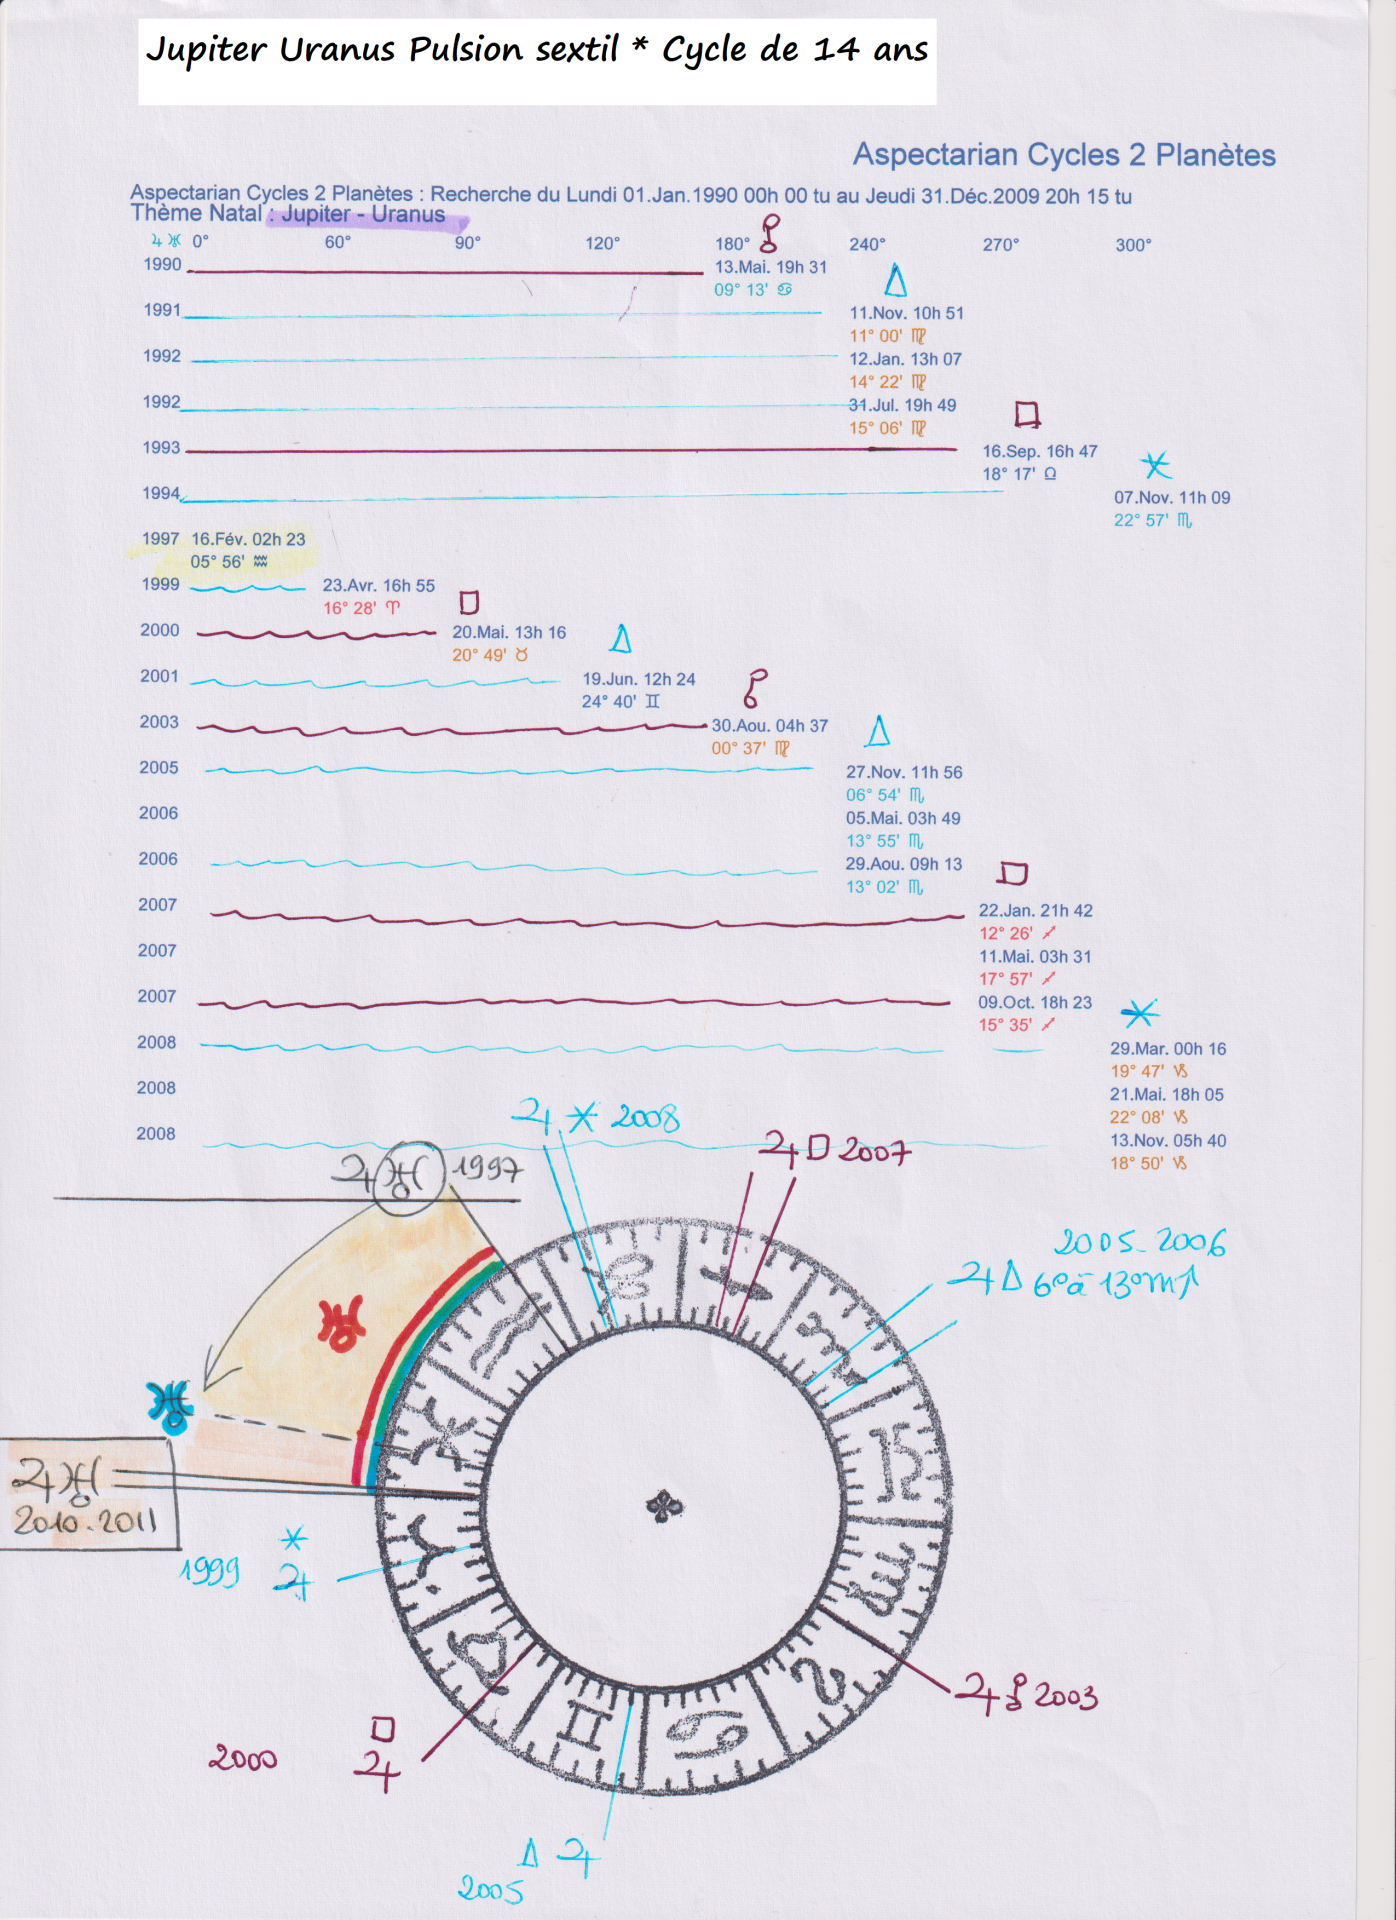 Jupiter Uranus Pulsion sextil * Cycle de 14 ans
Aspectarian Cycles 2 Planètes
Aspectarian Cycles 2 Planètes : Recherche du Lundi 01.Jan.1990 00h 00 tu au Jeudi 31.Déc.2009 20h 15 tu
Thème Natal : Jupiter - Uranus
♃ ♅ 0° 60° 90° 120° 180° ☍ 240° 270° 300°
1990 13.Mai. 19h 31
09° 13' ♋ △
1991 11.Nov. 10h 51
11° 00' ♍
1992 12.Jan. 13h 07
14° 22' ♍
1992 31.Jul. 19h 49 □
15° 06' ♍
1993 16.Sep. 16h 47
18° 17' ♎ ⚹
1994 07.Nov. 11h 09
22° 57' ♏
1997 16.Fév. 02h 23
05° 56' ♒
1999 23.Avr. 16h 55
16° 28' ♈ □
2000 20.Mai. 13h 16 △
20° 49' ♉
2001 19.Jun. 12h 24 ☍
24° 40' ♊
2003 30.Aou. 04h 37 △
00° 37' ♍
2005 27.Nov. 11h 56
06° 54' ♏
2006 05.Mai. 03h 49
13° 55' ♏
2006 29.Aou. 09h 13 □
13° 02' ♏
2007 22.Jan. 21h 42
12° 26' ♐
2007 11.Mai. 03h 31
17° 57' ♐
2007 09.Oct. 18h 23 ⚹
15° 35' ♐
2008 29.Mar. 00h 16
19° 47' ♑
2008 21.Mai. 18h 05
22° 08' ♑
2008 13.Nov. 05h 40
18° 50' ♑
♃ ⚹ 2008
♃ □ 2007
♃ ♅ 1997
2005-2006
♃ △ 6° à 13° ♏
♅
♅
♃ ♅
2010-2011
⚹
1999 ♃
♃ ☍ 2003
□
2000 ♃
△ ♃
2005
♑ ♐ ♏ ♎ ♍ ♌ ♋ ♊ ♉ ♈ ♓ ♒